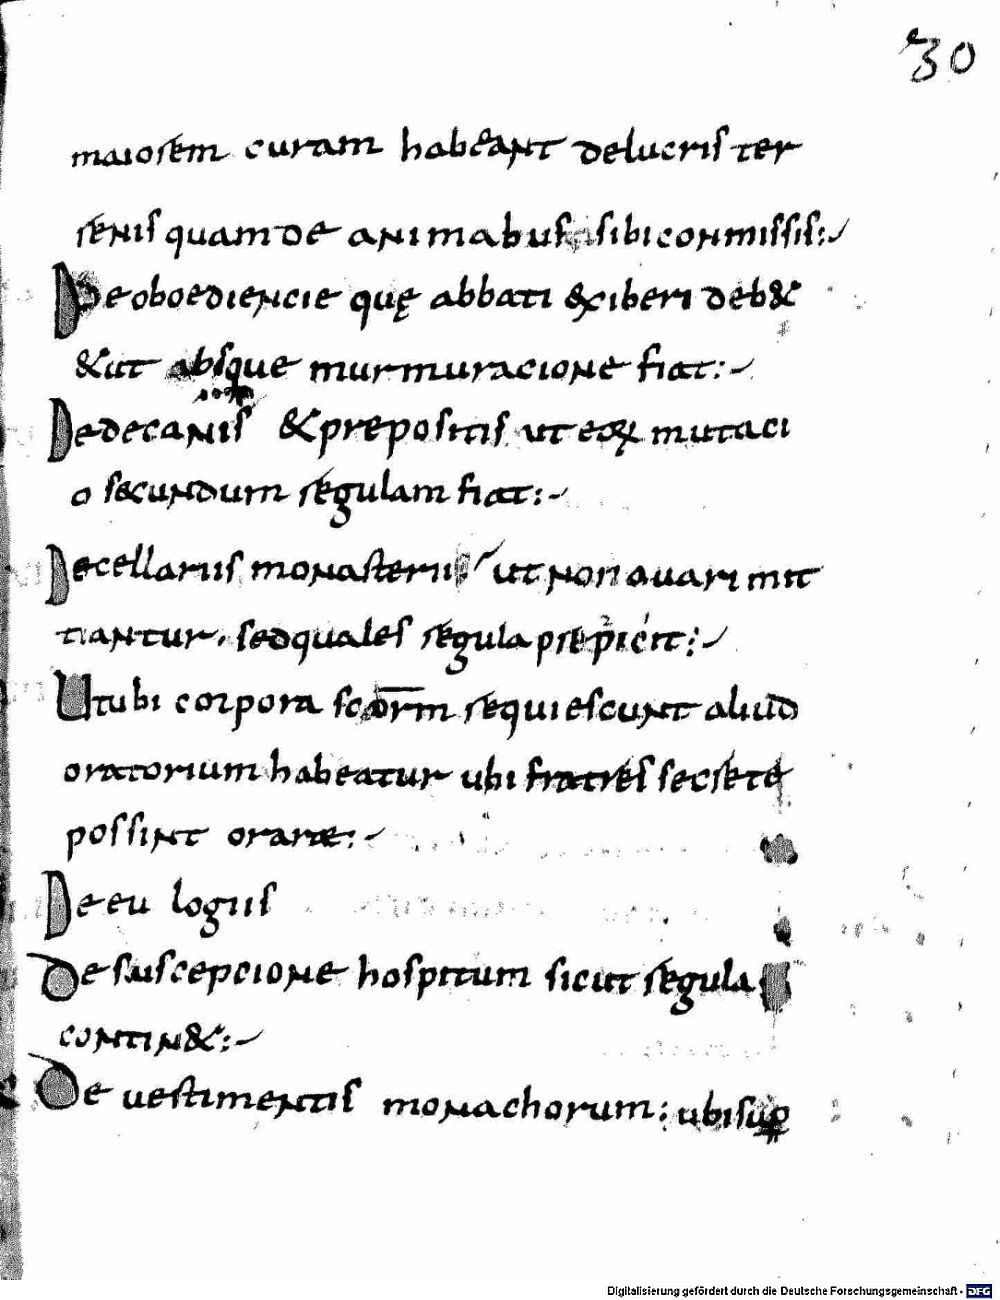 30
maiorem curam habeant delucris ter
renis quam de animabus sibi conmissis:
De oboediencie quę abbati exiberi deb&
& ut absque murmuracione fiat:
De decanis & prepositis ut eoꝝ mutaci
o secundum regulam fiat:
De cellariis monasterii ut non auari mit
tiantur, sed quales regula precipit:
Ut ubi corpora scōrm requiescunt aliud
oratorium habeatur ubi fratres secrete
possint orarae:
De eulogiis
De suscepcione hospitum sicut regula
contin&:
De uestimentis monachorum: ubi sup
Digitalisierung gefördert durch die Deutsche Forschungsgemeinschaft - DFG